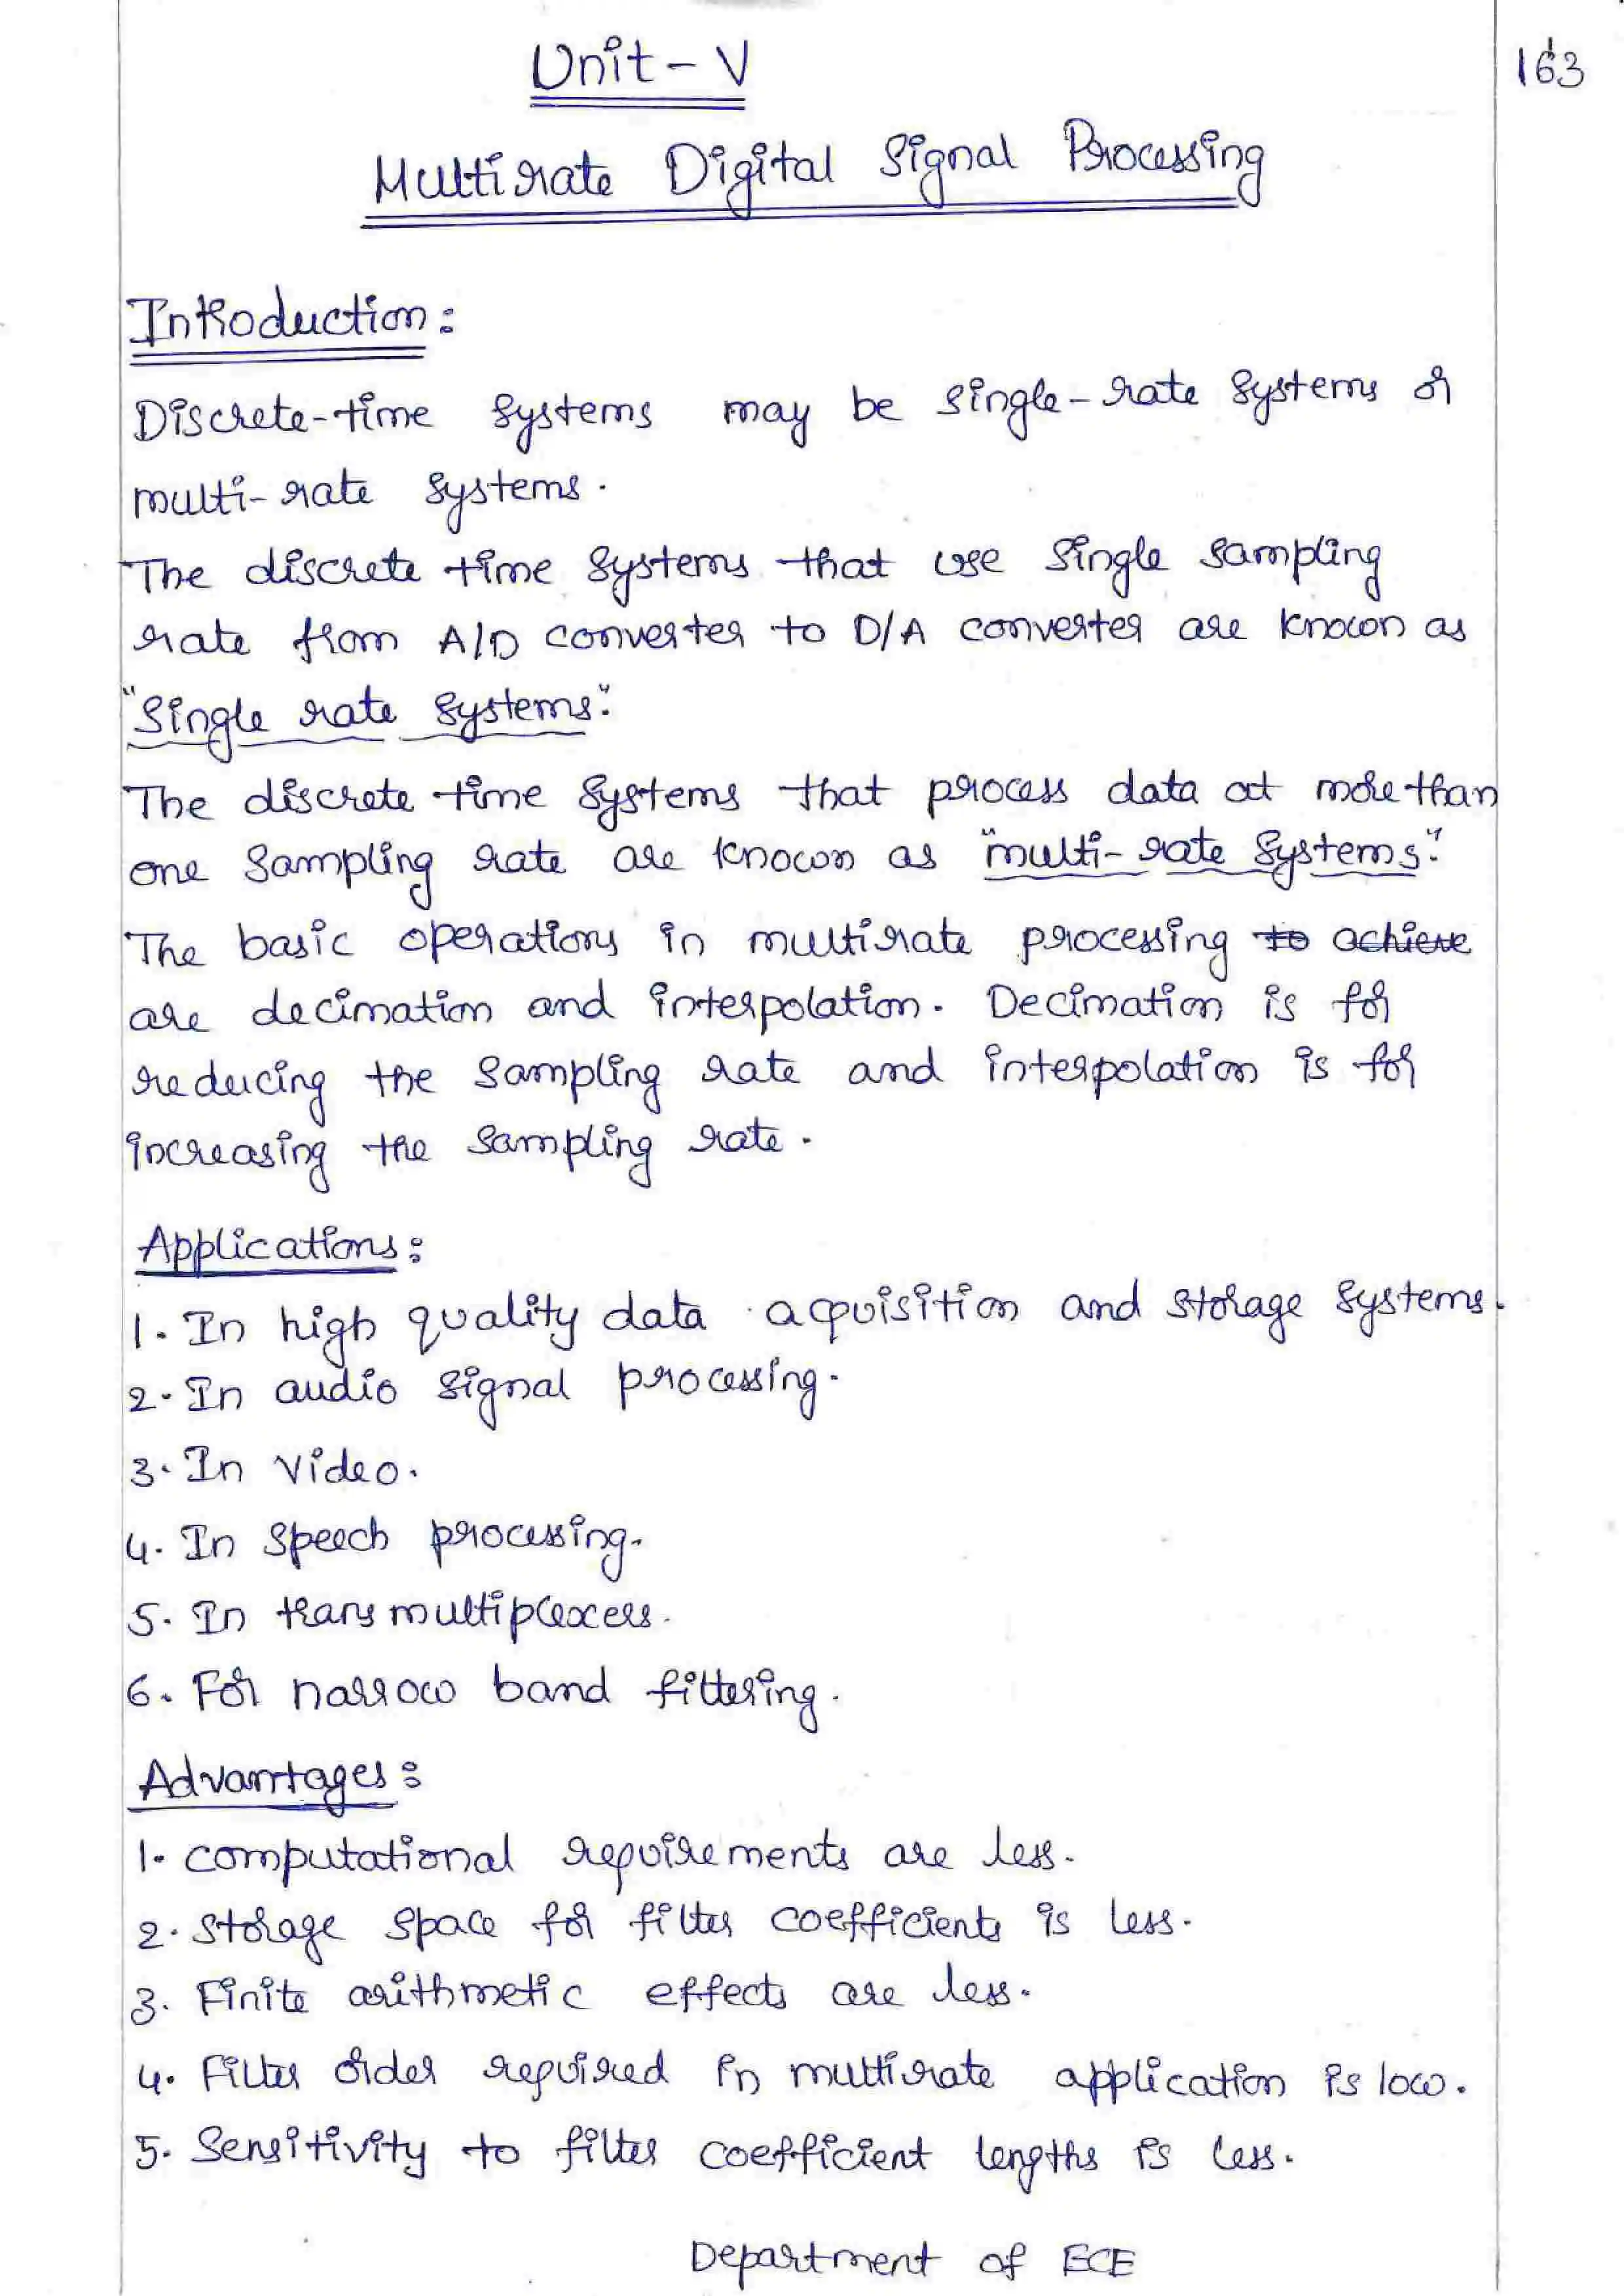 Unit - V
163
Multirate Digital Signal Processing
Introduction:
Discrete-time systems may be single-rate systems or
multi-rate systems.
The discrete time systems that use single sampling
rate from A/D converter to D/A converter are known as
"Single rate systems".
The discrete time systems that process data at more than
one sampling rate are known as "multi-rate systems".
The basic operations in multirate processing to achieve
are decimation and interpolation. Decimation is for
reducing the sampling rate and interpolation is for
increasing the sampling rate.
Applications:
1. In high quality data acquisition and storage systems.
2. In audio signal processing.
3. In video.
4. In speech processing.
5. In transmultiplexers.
6. For narrow band filtering.
Advantages:
1. computational requirements are less.
2. storage space for filter coefficients is less.
3. Finite arithmetic effects are less.
4. Filter order required in multirate application is low.
5. Sensitivity to filter coefficient lengths is less.
Department of ECE